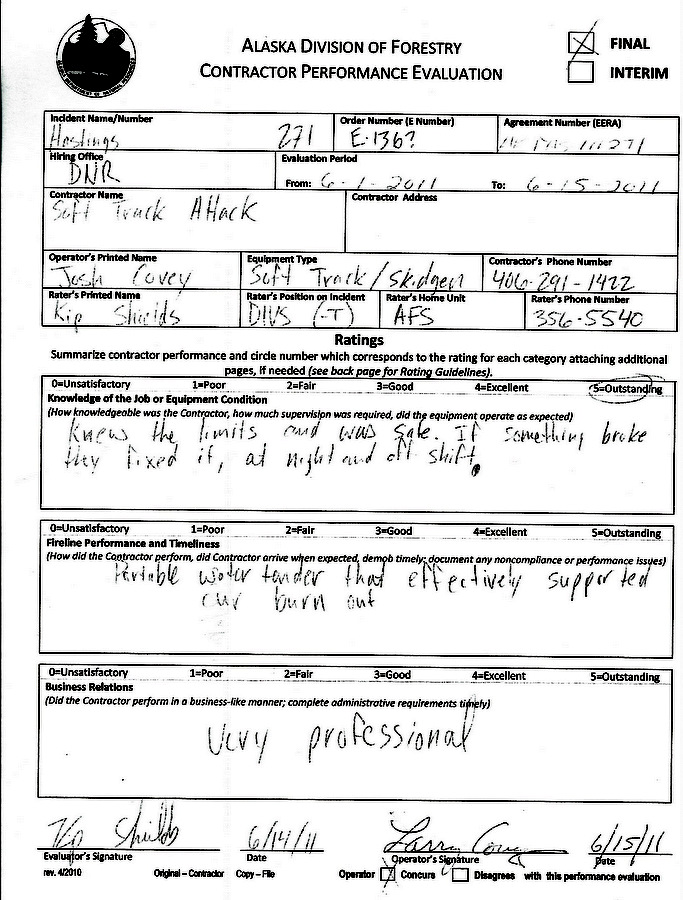 ALASKA DIVISION OF FORESTRY
CONTRACTOR PERFORMANCE EVALUATION
FINAL
INTERIM
Incident Name/Number
Hastings 271
Order Number (E Number)
E-136?
Agreement Number (EERA)
271
Hiring Office
DNR
Evaluation Period
From: 6-1-2011 To: 6-15-2011
Contractor Name
Soft Track Attack
Contractor Address
Operator's Printed Name
Josh Covey
Equipment Type
Soft Track/Skidgen
Contractor's Phone Number
406-291-1422
Rater's Printed Name
Kip Shields
Rater's Position on Incident
DIVS (-T)
Rater's Home Unit
AFS
Rater's Phone Number
356-5540
Ratings
Summarize contractor performance and circle number which corresponds to the rating for each category attaching additional
pages, if needed (see back page for Rating Guidelines).
0=Unsatisfactory 1=Poor 2=Fair 3=Good 4=Excellent 5=Outstanding
Knowledge of the Job or Equipment Condition
(How knowledgeable was the Contractor, how much supervision was required, did the equipment operate as expected)
Knew the limits and was safe. If something broke
they fixed it, at night and off shift.
0=Unsatisfactory 1=Poor 2=Fair 3=Good 4=Excellent 5=Outstanding
Fireline Performance and Timeliness
(How did the Contractor perform, did Contractor arrive when expected, demob timely; document any noncompliance or performance issues)
Portable water tender that effectively supported
our burn out
0=Unsatisfactory 1=Poor 2=Fair 3=Good 4=Excellent 5=Outstanding
Business Relations
(Did the Contractor perform in a business-like manner; complete administrative requirements timely)
Very professional
Kip Shields 6/14/11 Larry Covey 6/15/11
Evaluator's Signature Date Operator's Signature Date
rev. 4/2010 Original – Contractor Copy – File Operator Concurs Disagrees with this performance evaluation